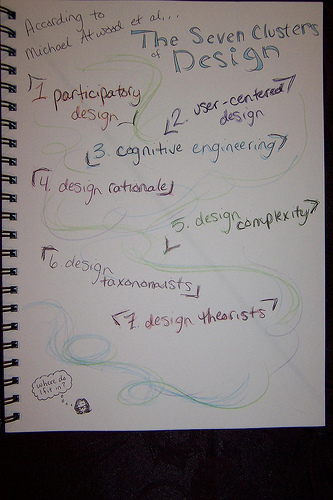 According to
Michael Atwood et al...
The Seven Clusters
of Design
1 participatory
design
2. user-centered
design
3. cognitive engineering
4. design rationale
5. design
complexity
6. design
taxonomists
7. design theorists
where do
I fit in?